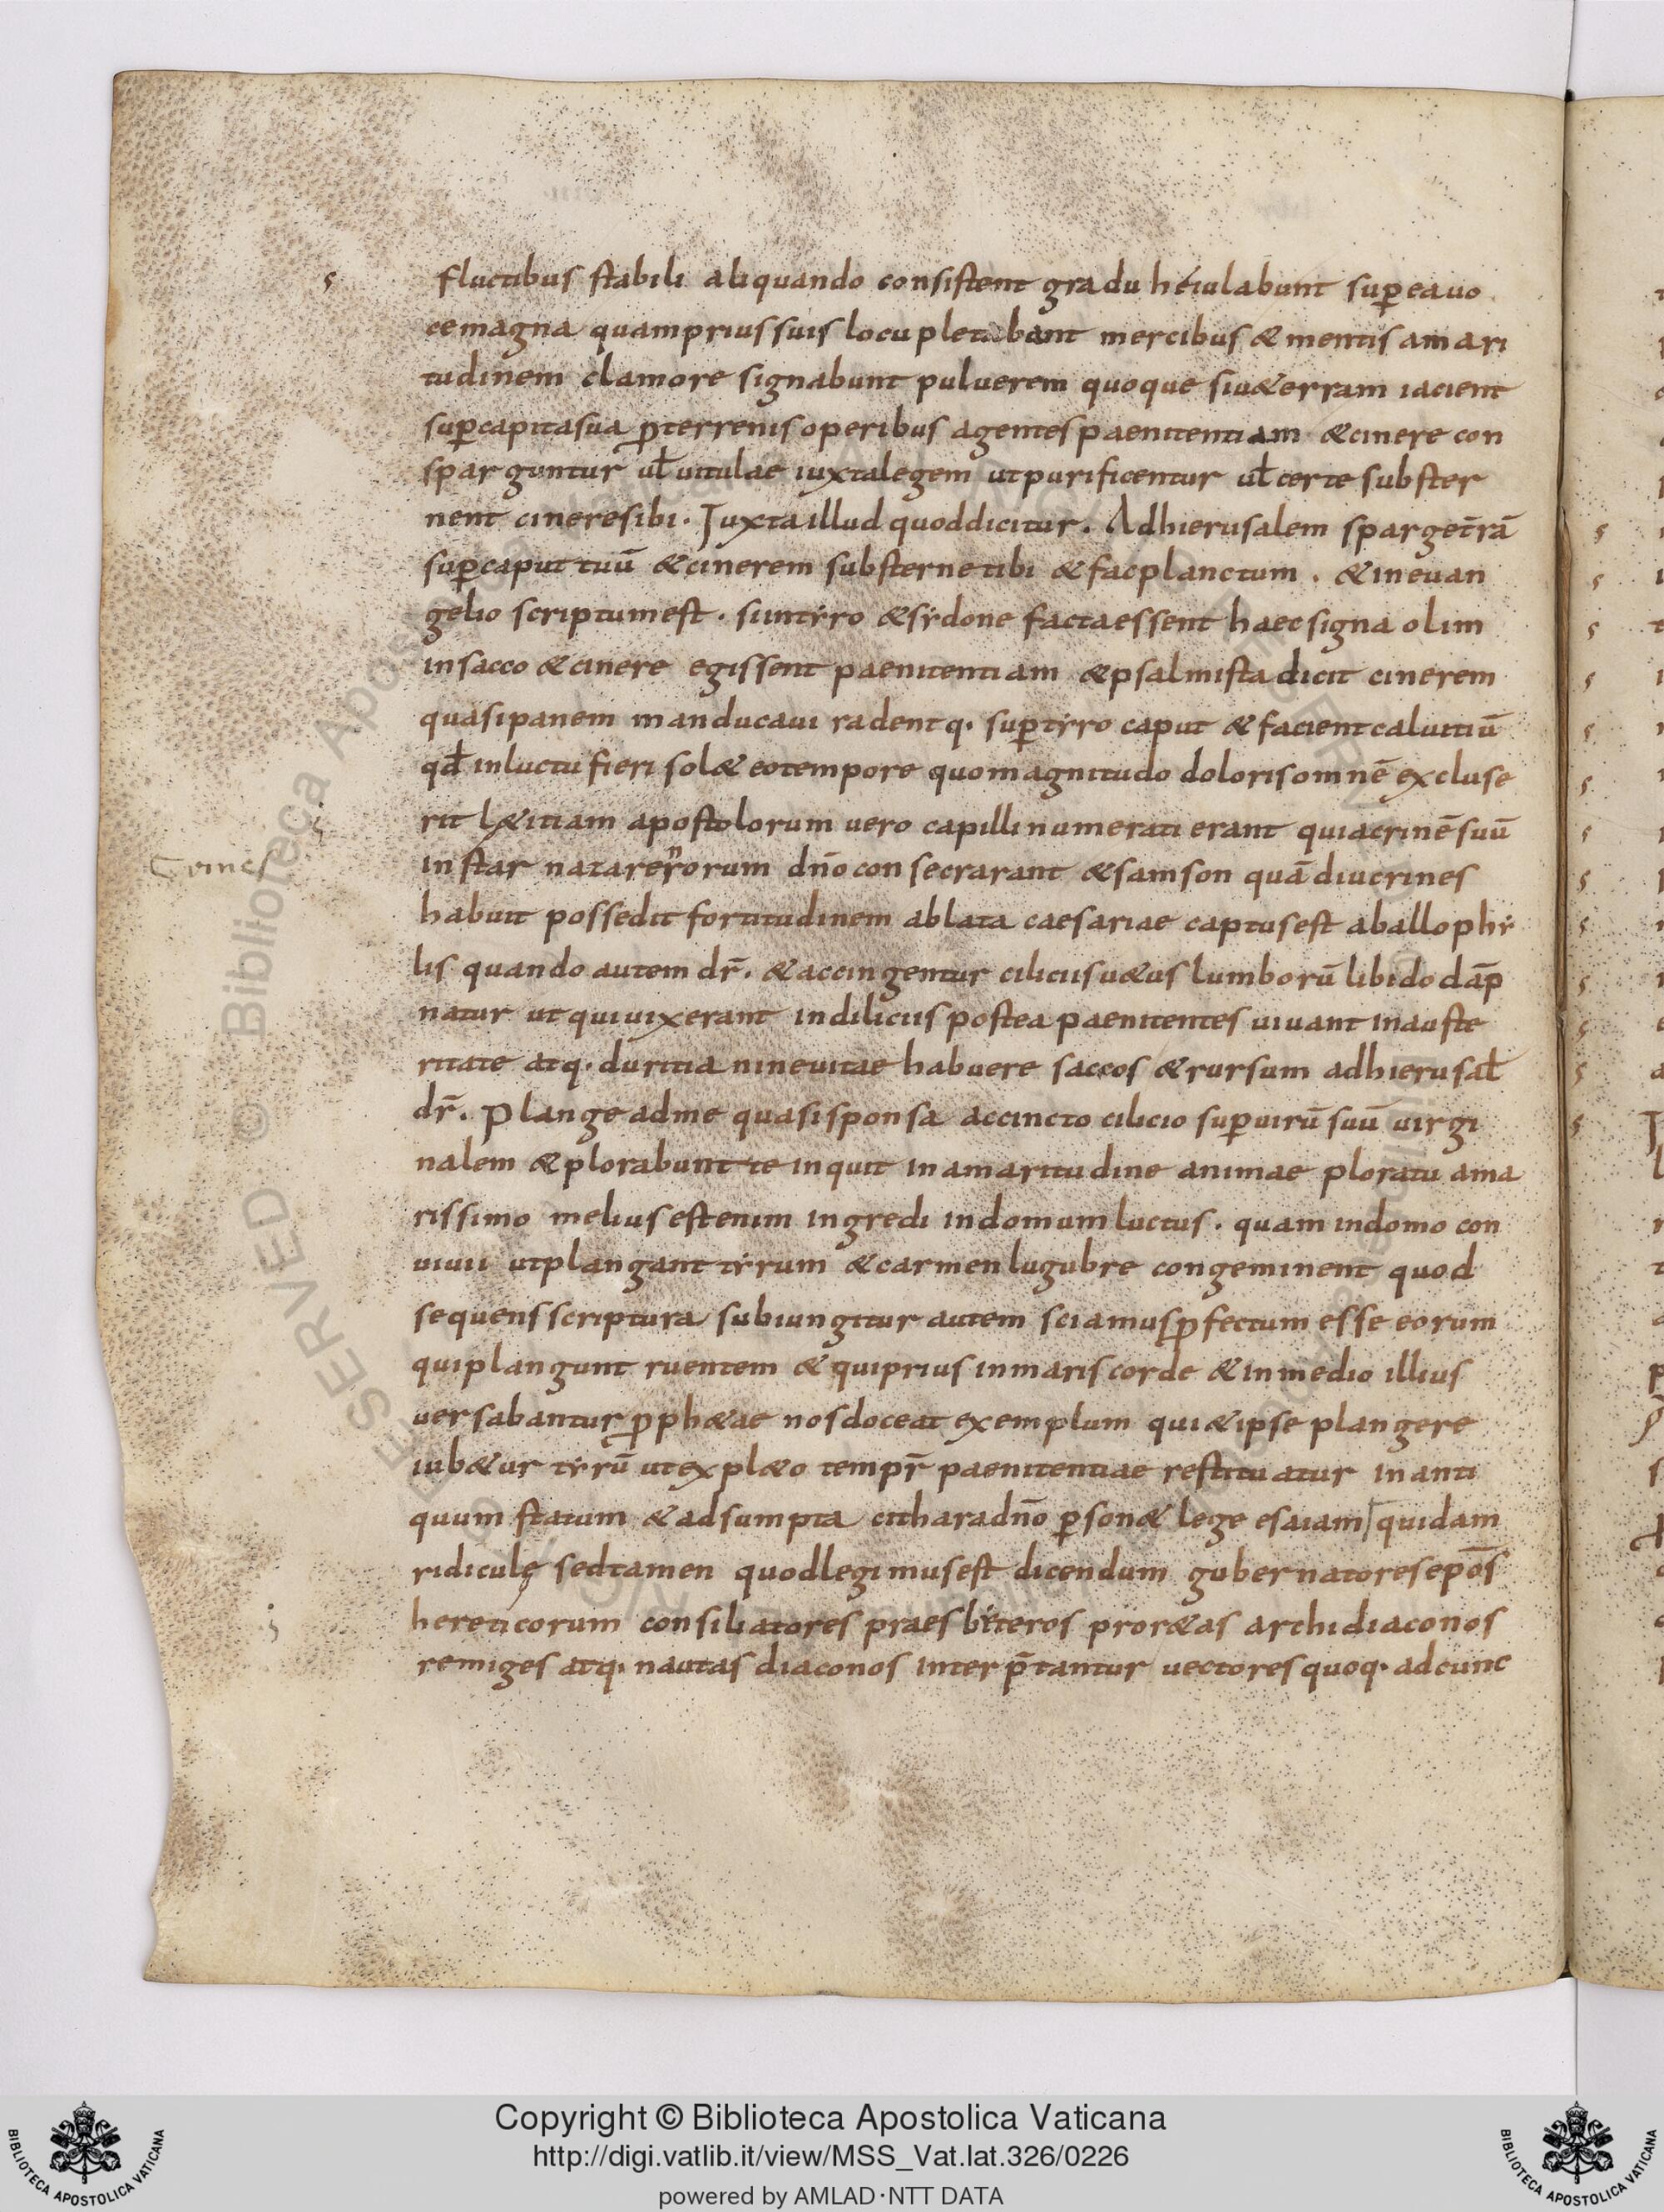 fluctibus stabili aliquando consistent gradu heiulabunt sup̱ eauo
ce magna quam prius suis locupletabant mercibus & mentis amari
tudinem clamore signabunt puluerem quoque siu&erram iacient
sup̱ capita sua ꝓ terrenis operibus agentes paenitentiam & cinere con
sparguntur ul̄ uitulae iuxta legem ut purificentur ul̄ certe subster
nent cinere sibi. Iuxta illud quod dicitur. Ad hierusalem sparge t̄rā
sup̱ caput tuū & cinerem substerne tibi & fac planctum. & in euan
gelio scriptum est. si in tẏro & sẏdone facta essent haec signa olim
in sacco & cinere egissent paenitentiam & psalmista dicit cinerem
quasi panem manducaui radentq. sup̱ tẏro caput & facient caluitiū
qd̄ in luctu fieri sol& eo tempore quo magnitudo doloris omnē excluse
rit l&itiam apostolorum uero capilli numerati erant quia crinē suū
instar nazarerorum dn̄o consecrarant & samson quā diu crines
habuit possedit fortitudinem ablata caesariae captus est ab allophẏ
lis quando autem dr̄. & accingentur ciliciis u&us lumborū libido dāp
natur ut qui uixerant in diliciis postea paenitentes uiuant in auste
ritate atq. duritia nineuitae habuere saccos & rursum ad hierusal̄
dr̄. Plange ad me quasi sponsa accincto cilicio sup̱ uirū suū uirgi
nalem & plorabunt te inquit in amaritudine animae ploratu ama
rissimo melius est enim ingredi in domum luctus. quam in domo con
uiuii ut plangant tẏrum & carmen lugubre congeminent quod
sequens scriptura subiungitur autem sciamus ꝓfectum esse eorum
qui plangunt ruentem & qui prius in maris corde & in medio illius
uersabantur ꝓph&ae nos doceat exemplum qui & ipse plangere
iub&ur tẏrū ut expl&o tempr̄ paenitentiae restituatur in anti
quum statum & adsumpta citharadn̄o p̱son& lege esaiam quidam
ridiculę sed tamen quod legimus est dicendum gubernatores ep̄os
hereticorum consiliatores praesbẏteros pror&as archidiaconos
remiges atq. nautas diaconos interp̄tantur uectores quoq. ad cunc
Copyright © Biblioteca Apostolica Vaticana
http://digi.vatlib.it/view/MSS_Vat.lat.326/0226
powered by AMLAD·NTT DATA
BIBLIOTECA APOSTOLICA VATICANA
BIBLIOTECA APOSTOLICA VATICANA